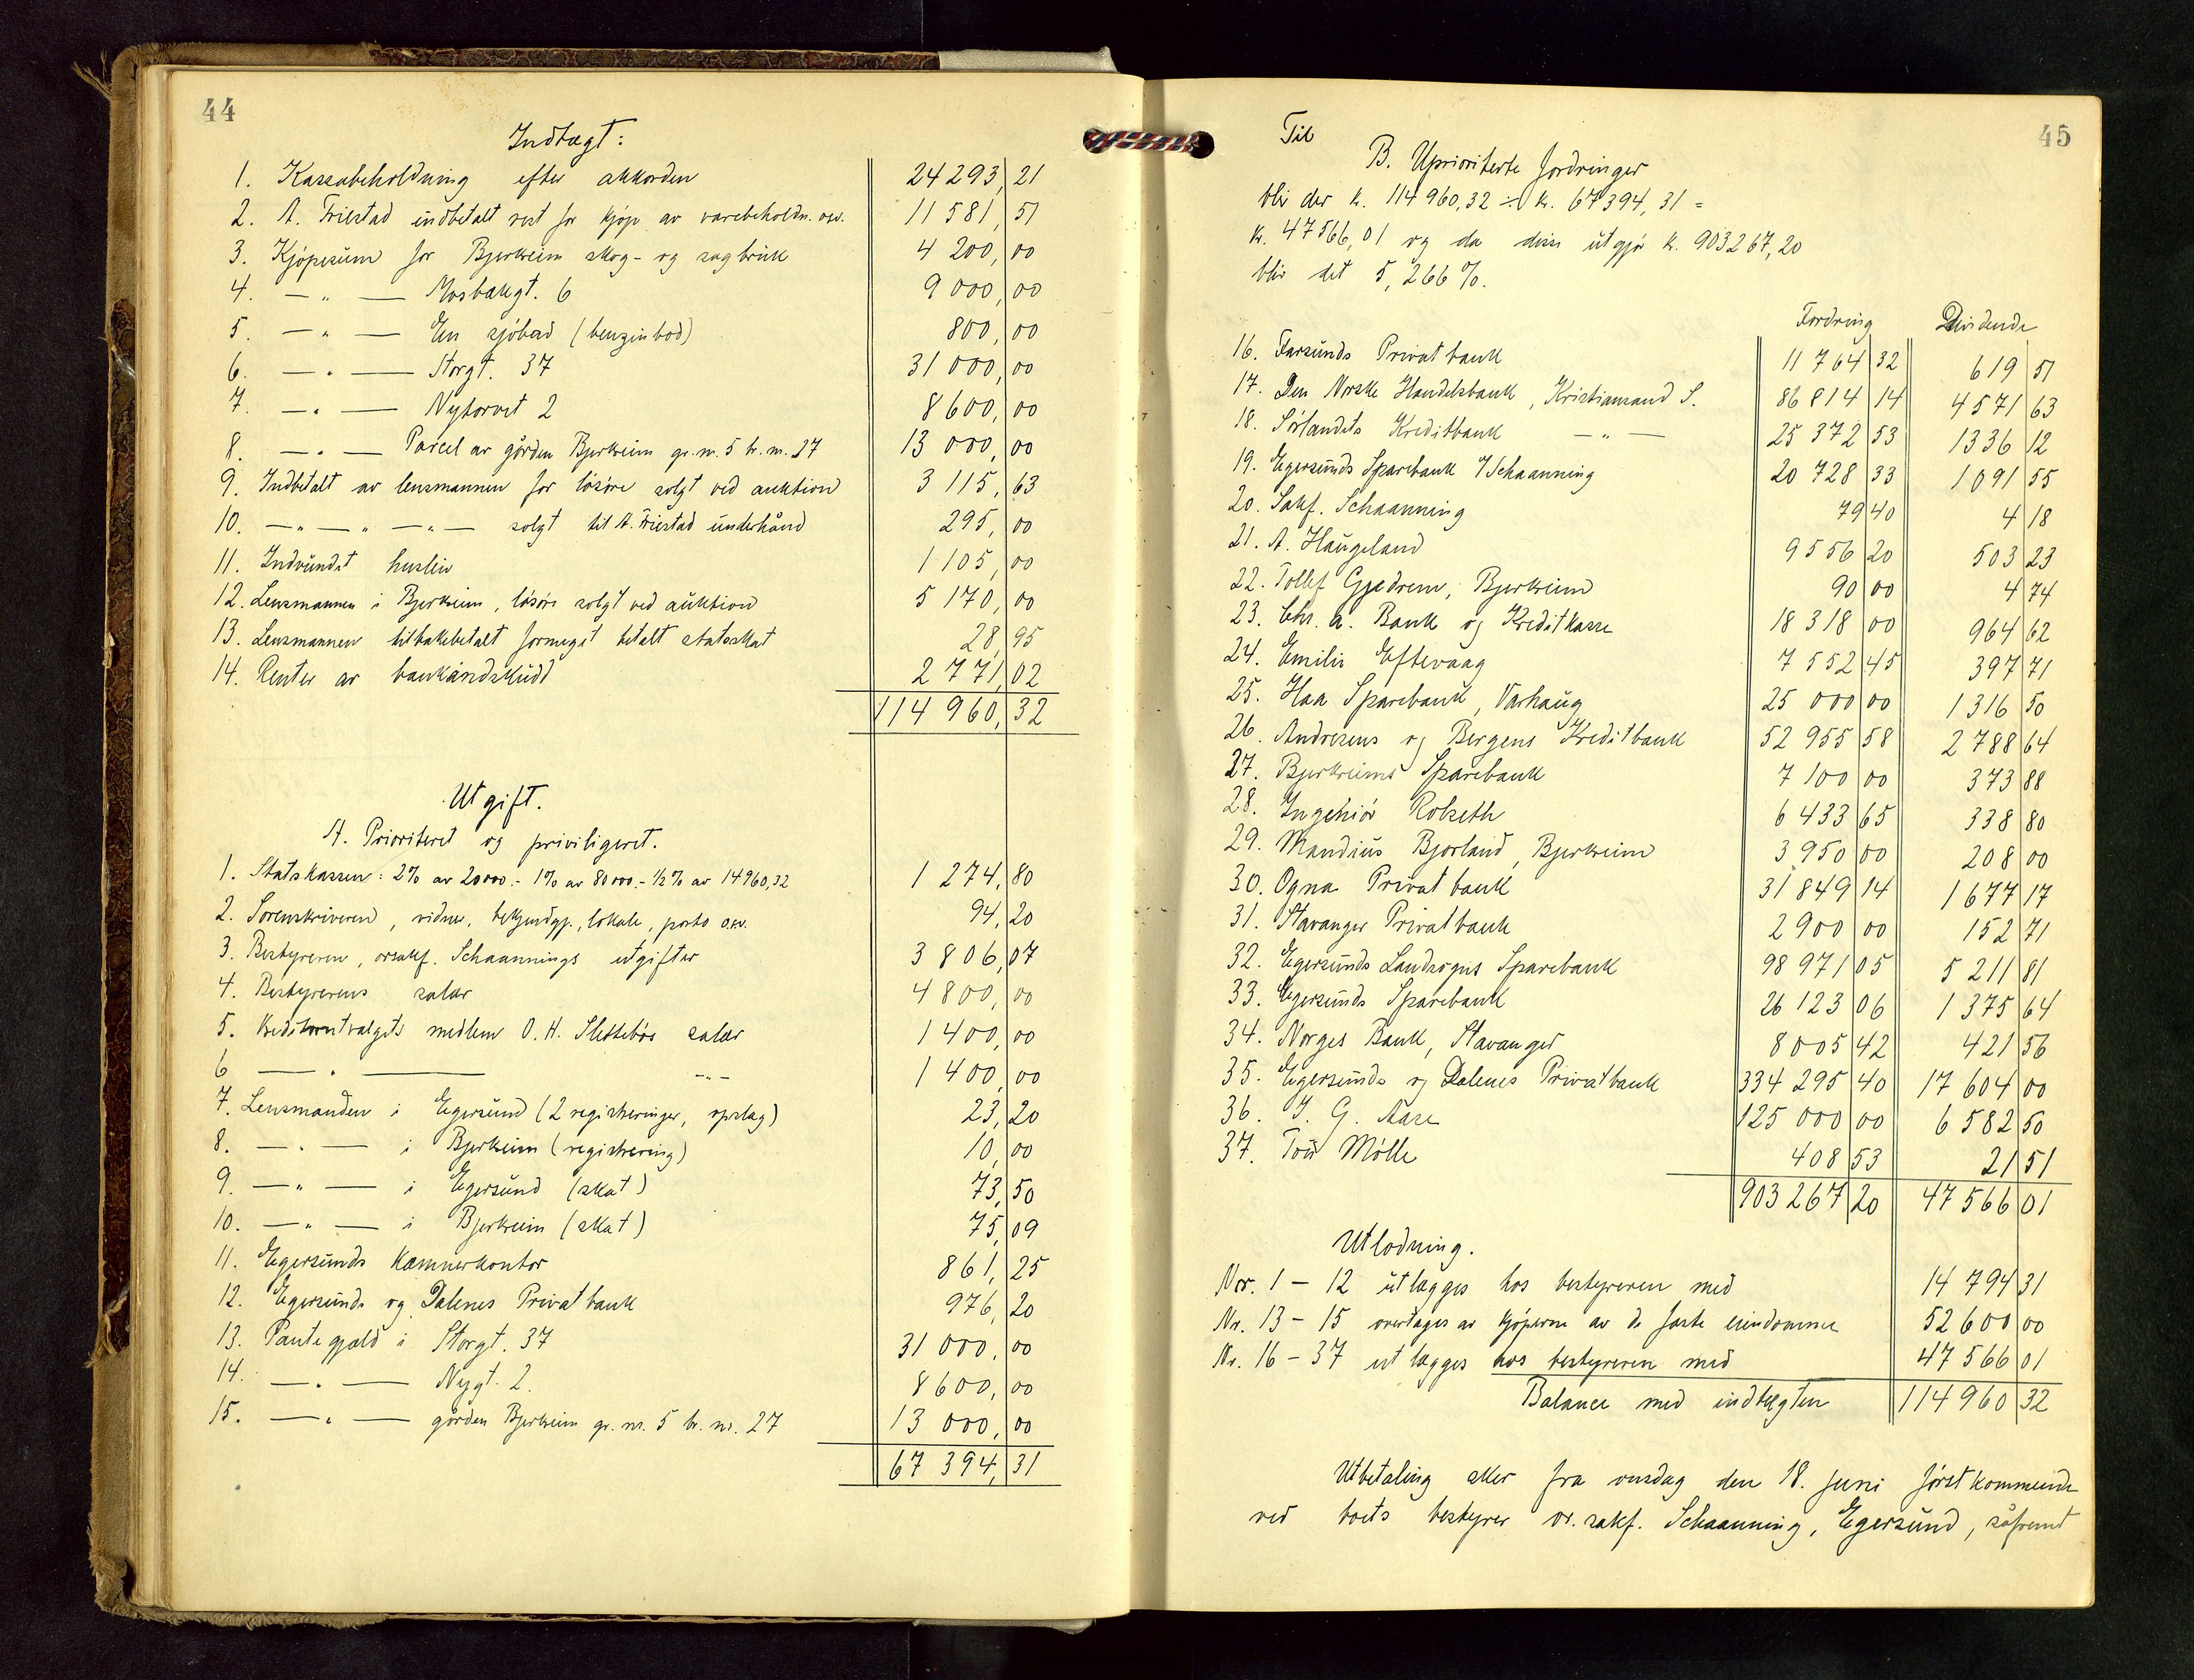 44
Indtægt:
1. Kassabeholdning efter akkorden 24 293,21
2. A. Friestad indbetalt rest for kjöp av varebeholdn. osv. 11 581,51
3. Kjöpesum for Bjerkreim skog- og sagbruk 4 200,00
4. — " — Mosbækgt. 6 9 000,00
5. — " — En sjöbod (benzinbod) 800,00
6. — " — Storgt. 37 31 000,00
7. — " — Nytorvet 2 8 600,00
8. — " — Parcel av gården Bjerkreim gr. nr. 5 br. nr. 27 13 000,00
9. Indbetalt av lensmannen for lösöre solgt ved auktion 3 115,63
10. — " — " — " — solgt til A. Friestad underhånd 295,00
11. Indvundet husleie 1 105,00
12. Lensmannen i Bjerkreim, lösöre solgt ved auktion 5 170,00
13. Lensmannen tilbakebetalt formeget betalt statsskat 28,95
14. Renter av bankindskudd 2 771,02
114 960,32
Utgift.
A. Prioriteret og priviligeret.
1. Statskassen: 2% av 20000.- 1% av 80000.- ½% av 14960,32 1 274,80
2. Sorenskriveren, vidner, bekjendtgj., lokale, porto osv. 94,20
3. Bestyreren, orsakf. Schaannings utgifter 3 806,07
4. Bestyrerens salær 4 800,00
5. Kreditorutvalgets medlem O. H. Slettebös salær 1 400,00
6 — " — - " - 1 400,00
7. Lensmanden i Egersund (2 registreringer, opslag) 23,20
8. — " — i Bjerkreim (registrering) 10,00
9. — " — i Egersund (skat) 73,50
10. — " — i Bjerkreim (skat) 75,09
11. Egersunds Kæmnerkontor 861,25
12. Egersunds og Dalenes Privatbank 976,20
13. Pantegjæld i Storgt. 37 31 000,00
14. — " — Nygt. 2. 8 600,00
15. — " — gården Bjerkreim gr. nr. 5 br. nr. 27 13 000,00
67 394,31
45
Til
B. Uprioriterte fordringer
blir der k. 114 960,32 ÷ k. 67 394,31 =
k. 47 566,01 og da disse utgjör k. 903 267,20
blir det 5,266%.
Fordring Dividende
16. Farsunds Privatbank 11 764 32 619 51
17. Den Norske Handelsbank, Kristiansand S. 86 814 14 4 571 63
18. Sörlandets Kreditbank — " — 25 372 53 1 336 12
19. Egersunds Sparebank v/Schaanning 20 728 33 1 091 55
20. Sakf. Schaanning 79 40 4 18
21. A. Haugeland 9 556 20 503 23
22. Tollef Gjedrem, Bjerkreim 90 00 4 74
23. Chr. a. Bank og Kreditkasse 18 318 00 964 62
24. Emilie Eftevaag 7 552 45 397 71
25. Haa Sparebank, Varhaug 25 000 00 1 316 50
26. Andresens og Bergens Kreditbank 52 955 58 2 788 64
27. Bjerkreims Sparebank 7 100 00 373 88
28. Ingeniör Rolseth 6 433 65 338 80
29. Mandius Bjorland, Bjerkreim 3 950 00 208 00
30. Ogna Privatbank 31 849 14 1 677 17
31. Stavanger Privatbank 2 900 00 152 71
32. Egersunds Landsogns Sparebank 98 971 05 5 211 81
33. Egersunds Sparebank 26 123 06 1 375 64
34. Norges Bank, Stavanger 8 005 42 421 56
35. Egersunds og Dalenes Privatbank 334 295 40 17 604 00
36. J. G. Aase 125 000 00 6 582 50
37. Tou Mölle 408 53 21 51
903 267 20 47 566 01
Utlodning.
Nr. 1 - 12 utlægges hos bestyreren med 14 794 31
Nr. 13 - 15 overtages av kjöperne av de faste eiendomme 52 600 00
Nr. 16 - 37 utlægges hos bestyreren med 47 566 01
Balance med indtægten 114 960 32
Utbetaling sker fra onsdag den 18. juni förstkommende
ved boets bestyrer or. sakf. Schaanning, Egersund, såfremt